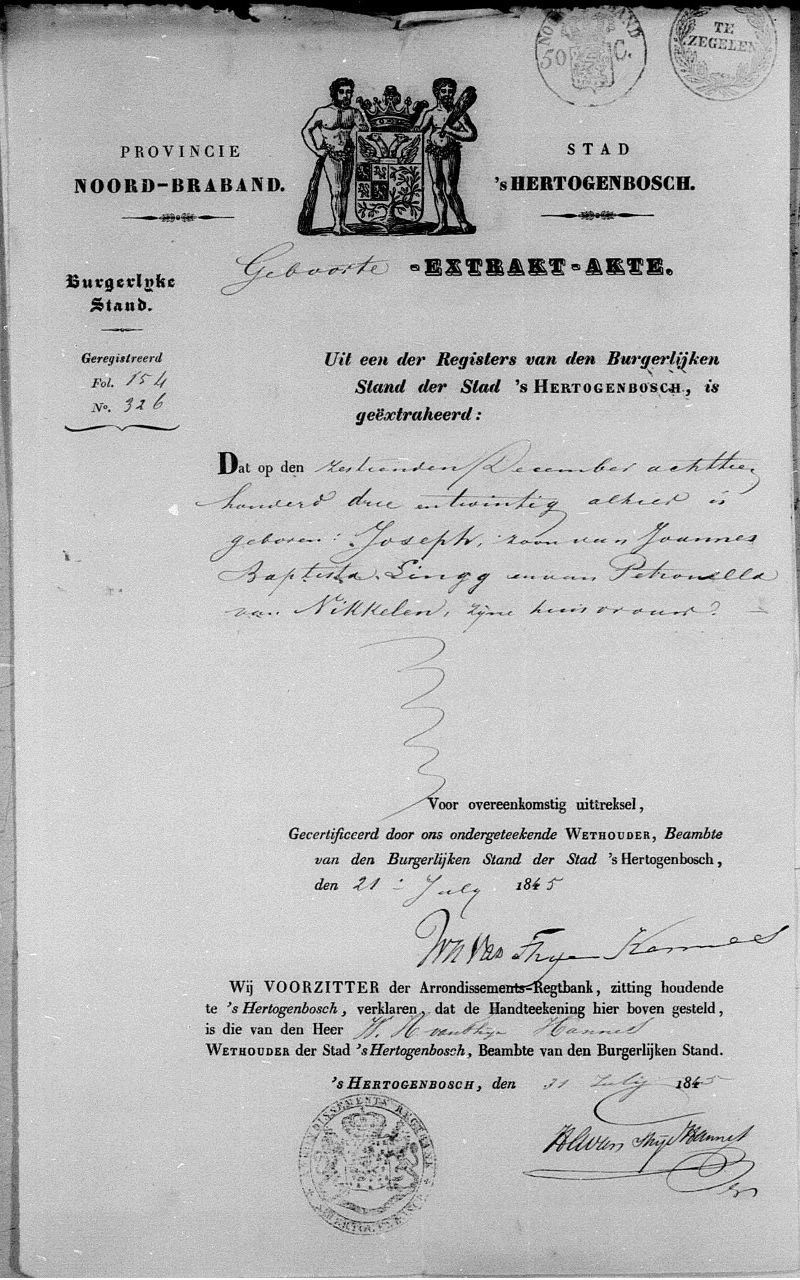 NOORD BRABAND
50 C.
TE
ZEGELEN
PROVINCIE
NOORD-BRABAND.
STAD
'sHERTOGENBOSCH.
Geboorte -EXTRAKT-AKTE.
Burgerlyke
Stand.
Geregistreerd
Fol. 154
No. 326
Uit een der Registers van den Burgerlijken
Stand der Stad 'sHERTOGENBOSCH, is
geëxtraheerd:
Dat op den zestienden December achttien
honderd drie en twintig alhier is
geboren: Joseph, zoon van Joannes
Baptista Lingg en van Petronella
van Nikkelen, zyne huisvrouw.
Voor overeenkomstig uittreksel,
Gecertificeerd door ons ondergeteekende WETHOUDER, Beambte
van den Burgerlijken Stand der Stad 'sHertogenbosch,
den 21 July 1845
Wij VOORZITTER der Arrondissements-Regtbank, zitting houdende
te 'sHertogenbosch, verklaren, dat de Handteekening hier boven gesteld,
is die van den Heer W. H. van Thye Hannes
WETHOUDER der Stad 'sHertogenbosch, Beambte van den Burgerlijken Stand.
'sHERTOGENBOSCH, den 31 July 1845
van Thye Hannes
ARRONDISSEMENTS REGTBANK